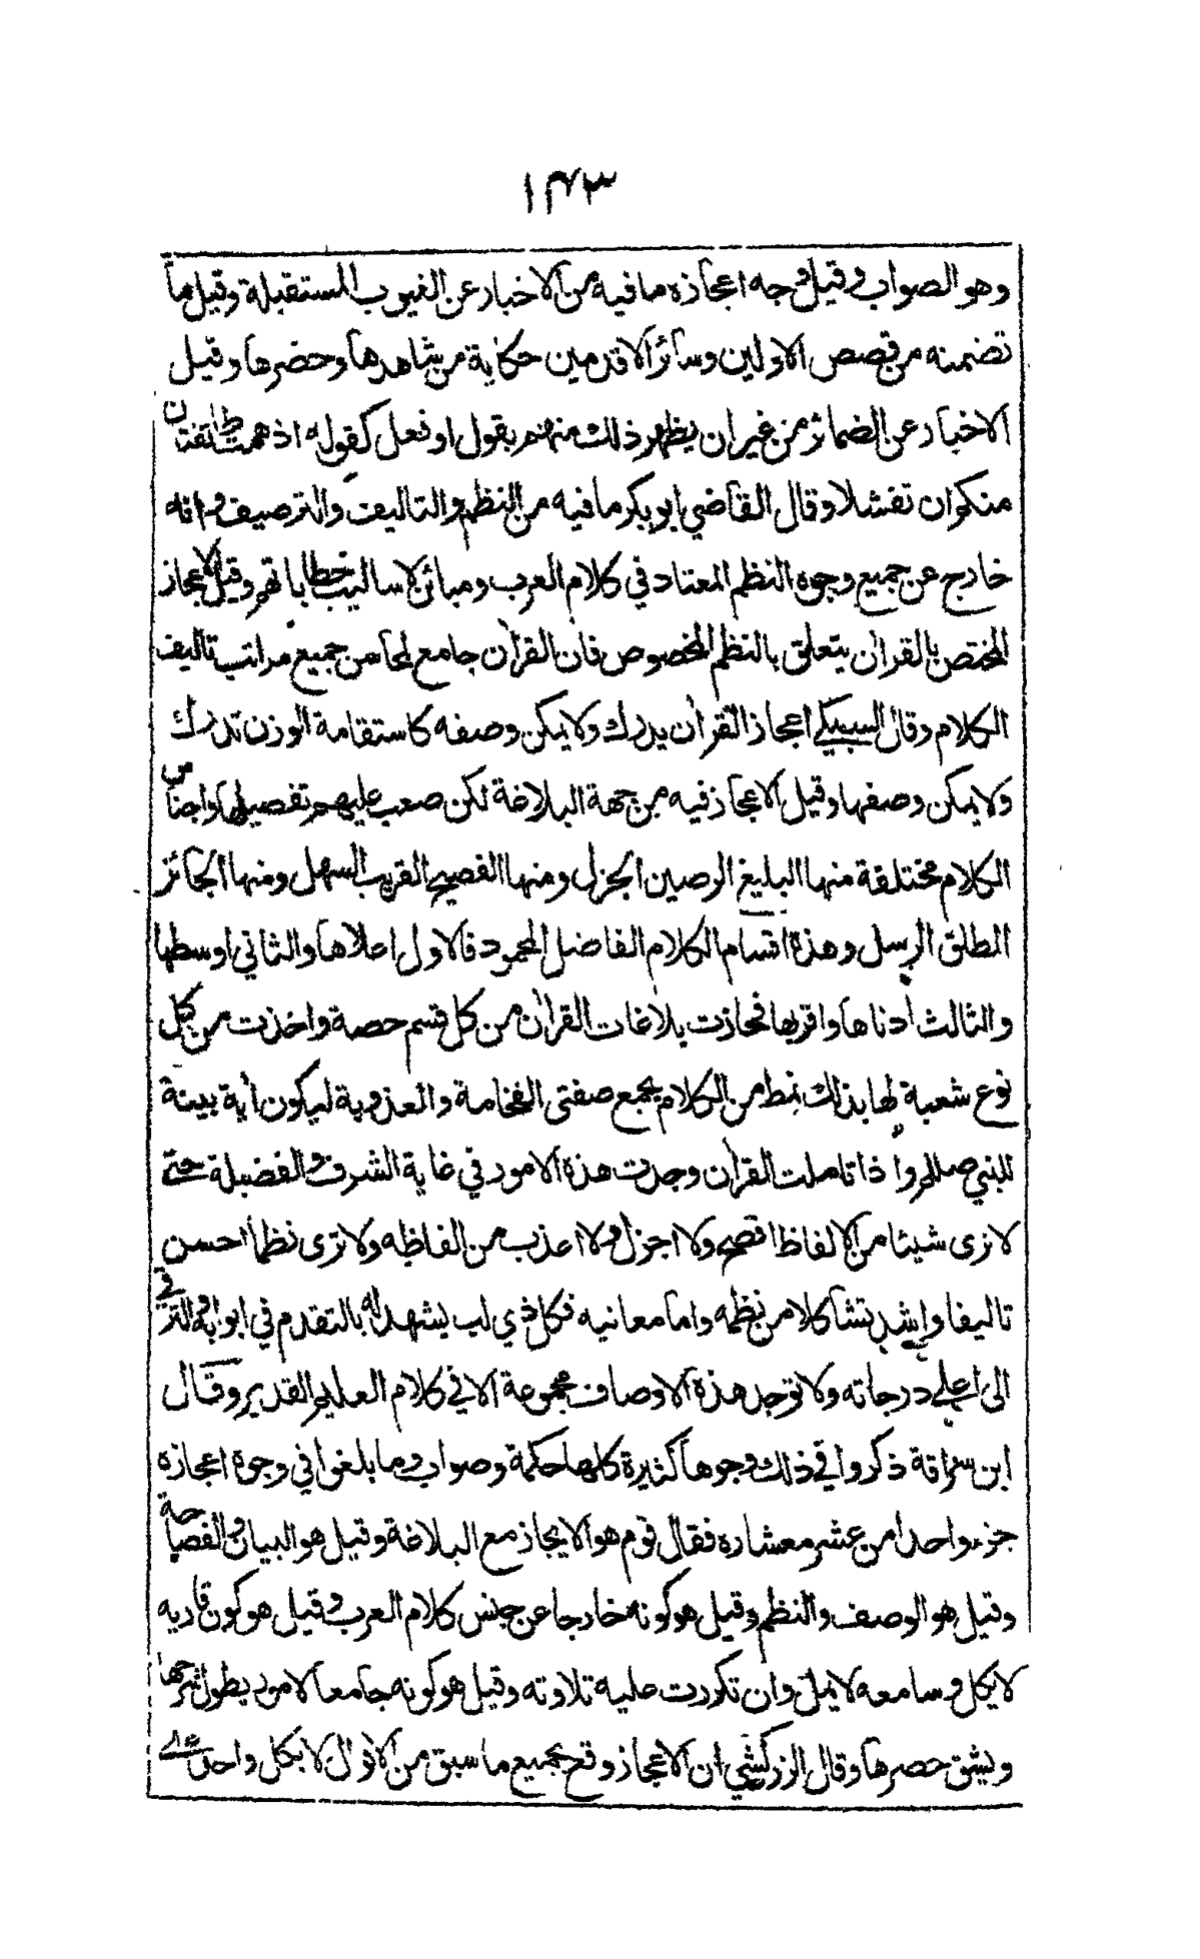 ١٤٣
وهو الصواب وقيل وجه اعجازه مافيه من الاخبار عن الغيوب المستقبلة وقيل ما
تضمنه من قصص الاولين وسائر الاقدمين حكاية من شاهدها وحضرها وقيل
الاخبار عن الضمائر من غير ان يظهر ذلك منهم بقول او فعل كقوله اذ همت طائفتان
منكم ان تفشلا وقال القاضي ابو بكر ما فيه من النظم والتاليف والترصيف وانه
خارج عن جميع وجوه النظم المعتاد في كلام العرب ومبائن لاساليب خطاباتهم وقيل الاعجاز
المختص بالقران يتعلق بالنظم المخصوص فان القران جامع لمحاسن جميع مراتب تاليف
الكلام وقال السبيكي اعجاز القران يدرك ولا يمكن وصفه كاستقامة الوزن تدرك
ولا يمكن وصفها وقيل الاعجاز فيه من جهة البلاغة لكن صعب عليهم تفصيلها واجناس
الكلام مختلفة منها البليغ الرصين الجزل ومنها الفصيح القريب السهل ومنها الجائز
الطلق الرسل وهذه اقسام الكلام الفاضل المحمود فالاول اعلاها والثاني اوسطها
والثالث أدناها واقربها فحازت بلاغات القران من كل قسم حصة واخذت من كل
نوع شعبة لها بذلك نمط من الكلام يجمع صفتى الفخامة والعذوبة ليكون أية بينة
للنبي صللم واذا تاملت القران وجدت هذه الامور في غاية الشرف والفضيلة حتى
لا ترى شيئا من الالفاظ افصح ولا اجزل ولا اعذب من الفاظه ولا ترى نظما احسن
تاليفا واشد تشاكلا من نظمه واما معانيه فكل ذي لب يشهد له بالتقدم في ابوابه والترقي
الى اعلي درجاته ولا توجد هذه الاوصاف مجموعة الا في كلام العليم القدير وقال
ابن سراقة ذكروا في ذلك وجوها كثيرة كلها حكمة وصواب وما بلغوا في وجوه اعجازه
جزء واحدا من عشر معشاره فقال قوم هو الايجاز مع البلاغة وقيل هو البيان والفصاحة
وقيل هو الوصف والنظم وقيل هو كونه خارجا عن جنس كلام العرب وقيل هو كون قاريه
لا يكل وسامعه لا يمل وان تكررت عليه تلاوته وقيل هو كونه جامعا لامور يطول شرحها
ويشق حصرها وقال الزركشي ان الاعجاز وقع بجميع ما سبق من الاقوال لا بكل واحد على